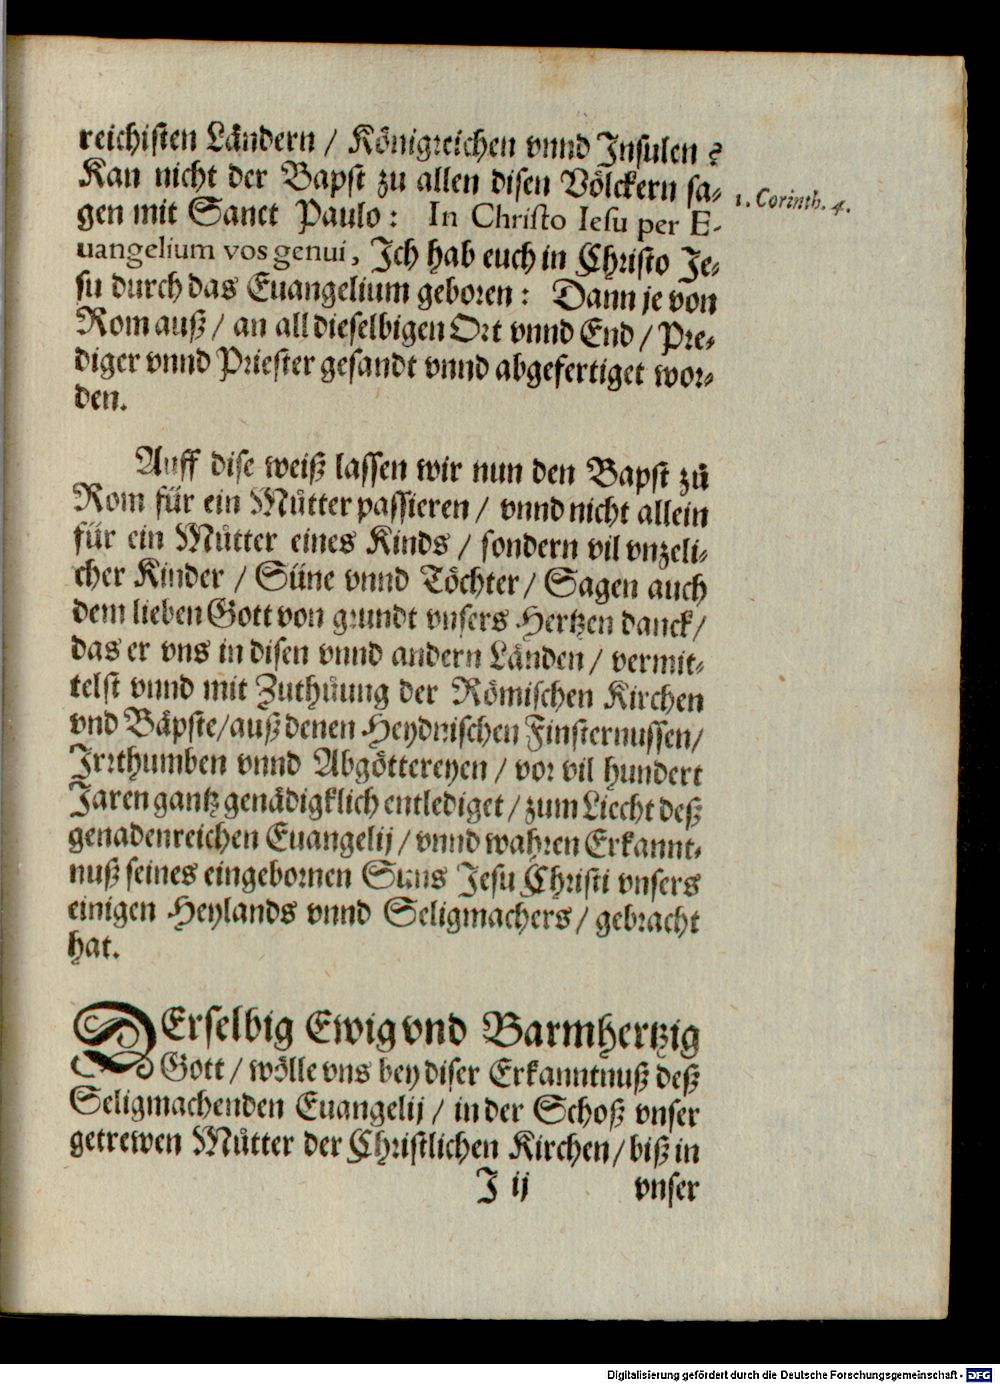 reichisten Ländern / Königreichen vnnd Insulen?
Kan nicht der Bapst zu allen disen Völckern sa-
gen mit Sanct Paulo: In Christo Iesu per E-
uangelium vos genui, Ich hab euch in Christo Je-
su durch das Euangelium geboren: Dann je von
Rom auß / an all dieselbigen Ort vnnd End / Pre-
diger vnnd Priester gesandt vnnd abgefertiget wor-
den.
1. Corinth. 4.
Auff dise weiß lassen wir nun den Bapst zů
Rom für ein Můtter passieren / vnnd nicht allein
für ein Můtter eines Kinds / sondern vil vnzeli-
cher Kinder / Süne vnnd Töchter / Sagen auch
dem lieben Gott von grundt vnsers Hertzen danck /
das er vns in disen vnnd andern Länden / vermit-
telst vnnd mit Zuthůung der Römischen Kirchen
vnd Bäpste / auß denen Heydnischen Finsternussen /
Irrthumben vnnd Abgöttereyen / vor vil hundert
Jaren gantz genädigklich entlediget / zum Liecht deß
genadenreichen Euangelij / vnnd wahren Erkannt-
nuß seines eingebornen Suns Jesu Christi vnsers
einigen Heylands vnnd Seligmachers / gebracht
hat.
DErselbig Ewig vnd Barmhertzig
Gott / wölle vns bey diser Erkanntnuß deß
Seligmachenden Euangelij / in der Schoß vnser
getrewen Můtter der Christlichen Kirchen / biß in
J ij vnser
Digitalisierung gefördert durch die Deutsche Forschungsgemeinschaft - DFG